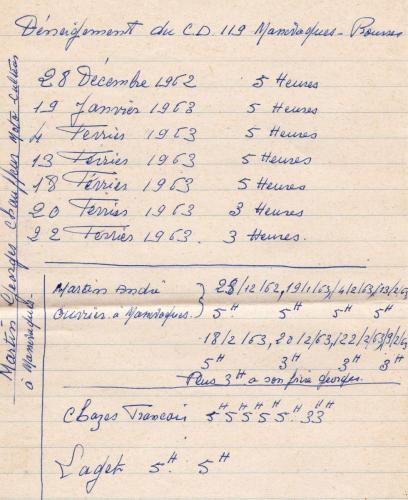 Déneigement du C.D. 119 Mandragues - Rousses
28 Décembre 1962 5 Heures
19 Janvier 1963 5 Heures
4 Ferrier 1963 5 Heures
13 Ferrier 1963 5 Heures
18 Férrier 1963 5 Heures
20 Ferrier 1963 3 Heures
22 Ferrier 1963. 3 Heures.
Martin Georges Chauffeur
à
Martin André 28/12/62, 19/1/63, 4/2/63, 13/2/63
Ouvrier à 5H 5H 5H 5H
18/2/63, 20/2/63, 22/2/63, 9/2/63
5H 3H 3H 3H
Plus 3H a son frère georges.
Chazes Francois 5H 5H 5H 5H 5H 3H 3H
Laget 5H. 5H